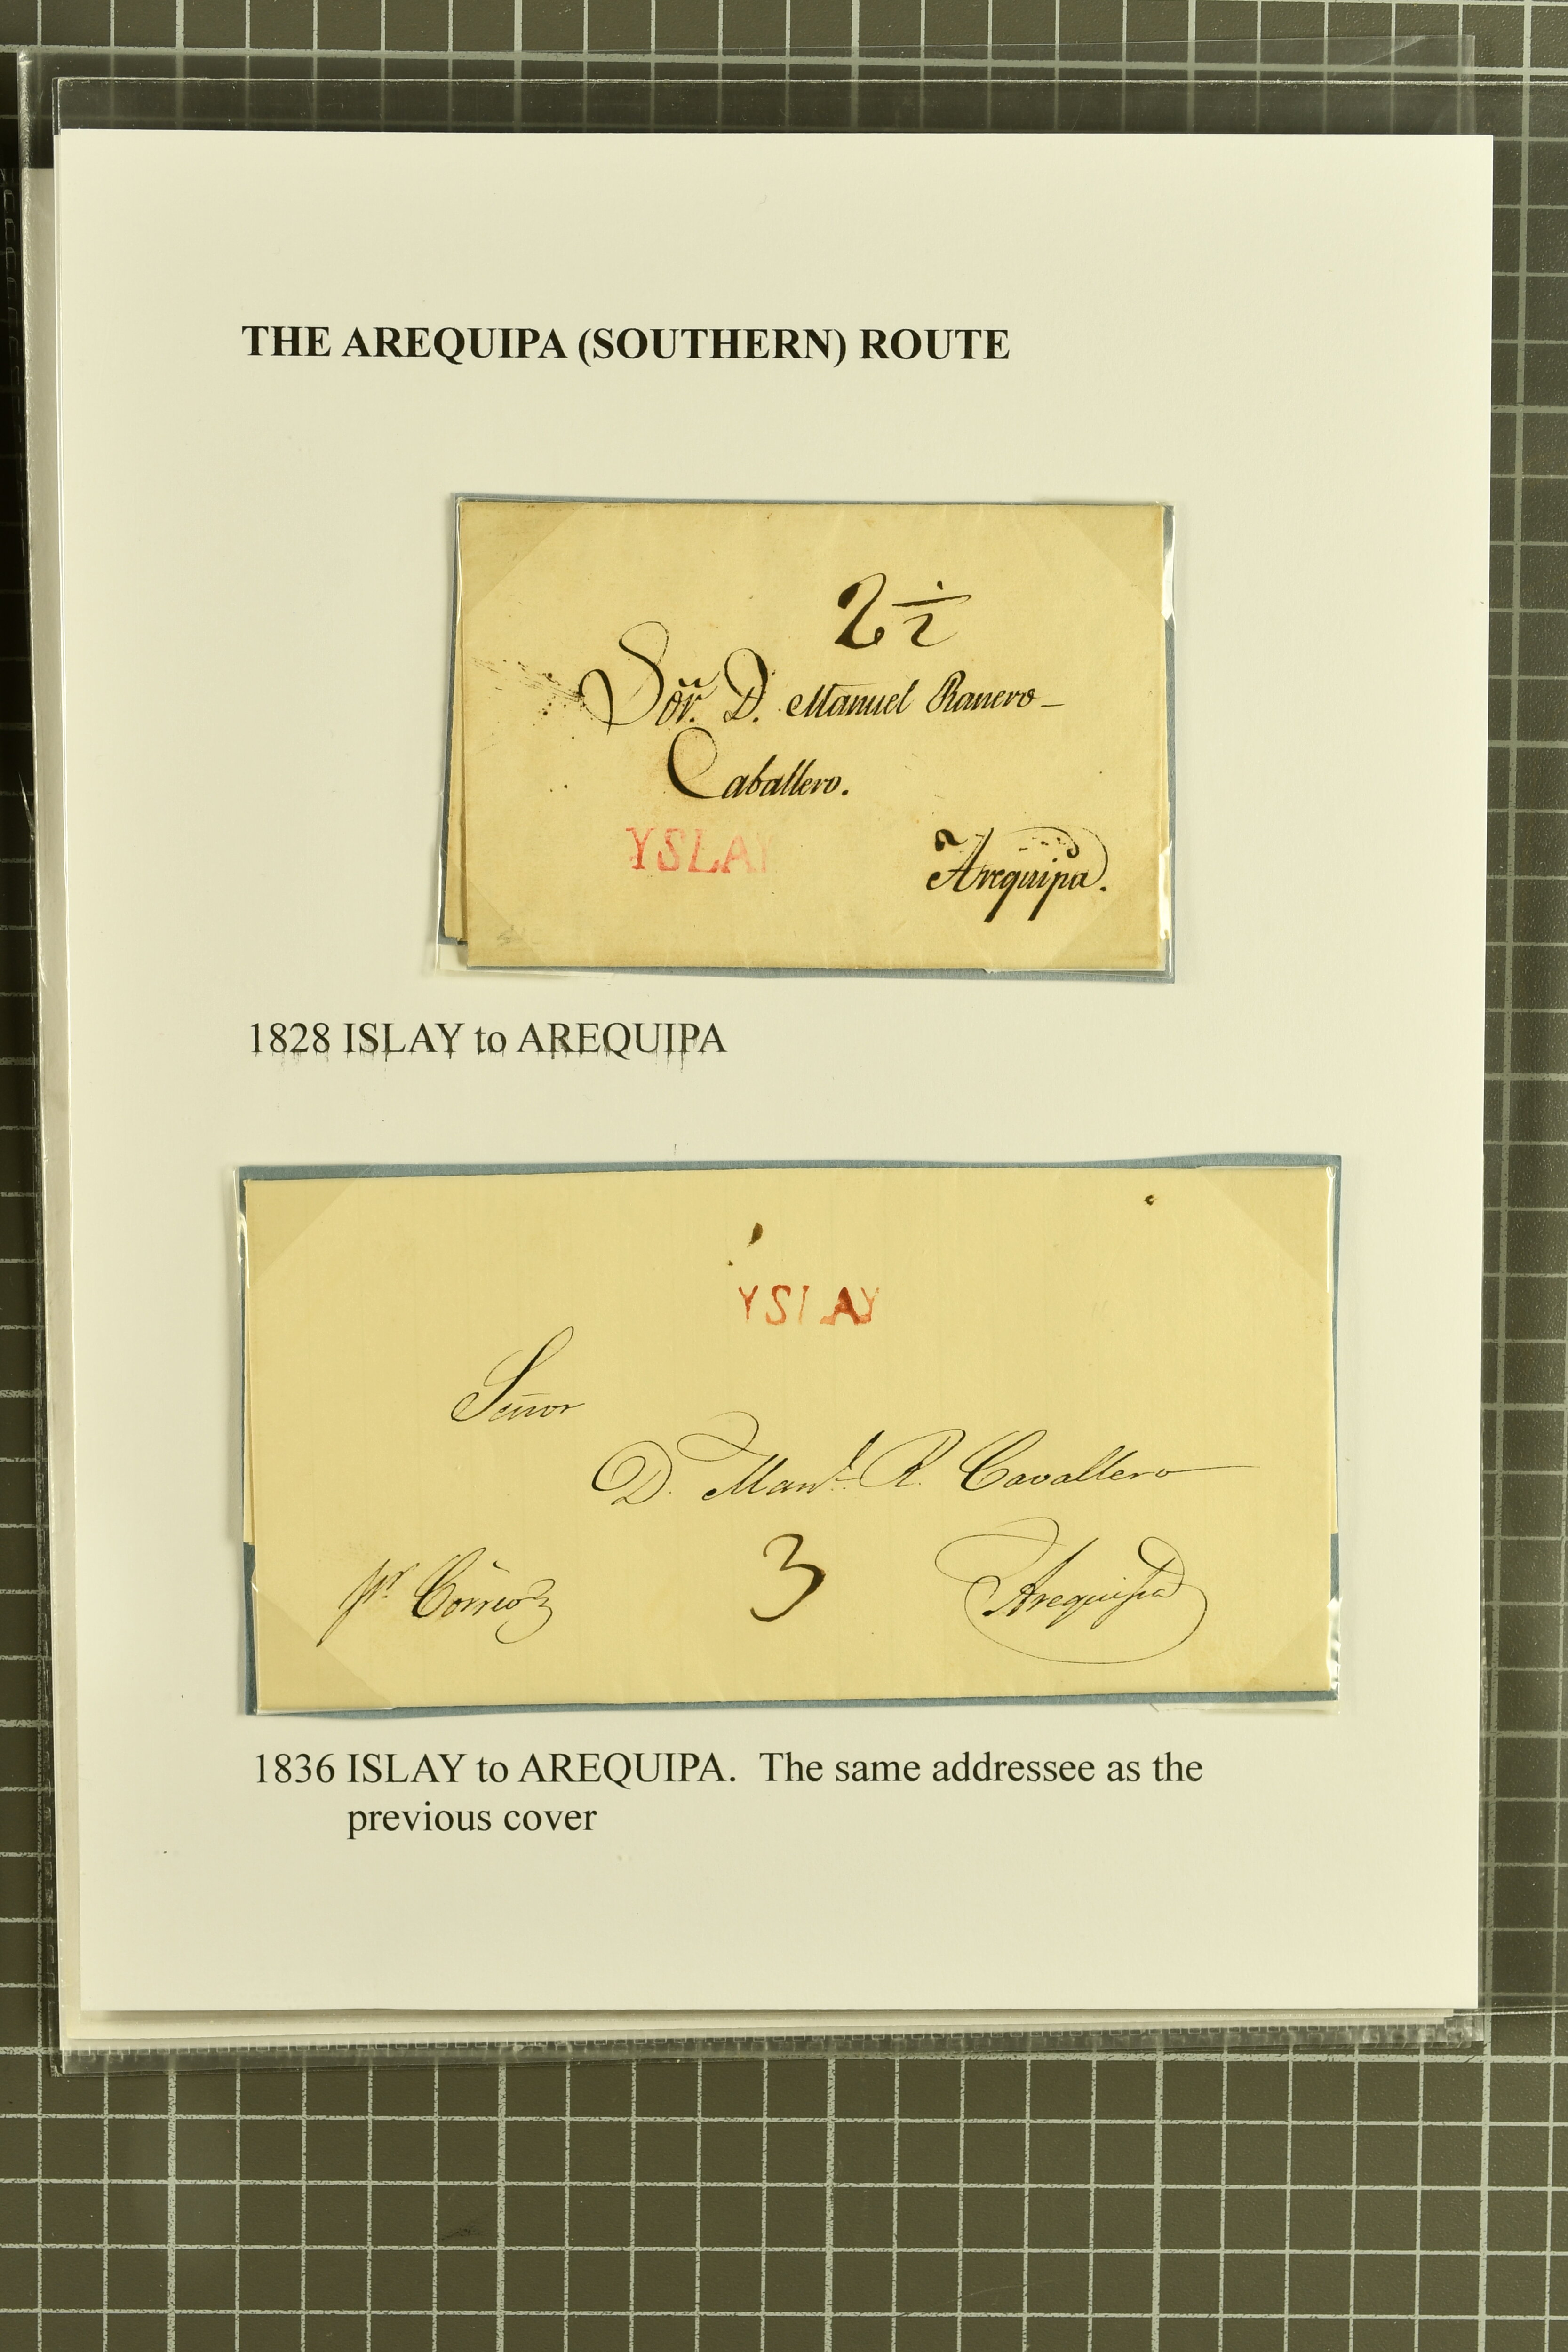 THE AREQUIPA (SOUTHERN) ROUTE
2 ½
Sõr. D. Manuel Ranero
Caballero.
YSLAY
Arequipa.
1828 ISLAY to AREQUIPA
YSLAY
Señor
D. Manl. R. Cavallero
pr. Correo
3
Arequipa
1836 ISLAY to AREQUIPA. The same addressee as the
previous cover